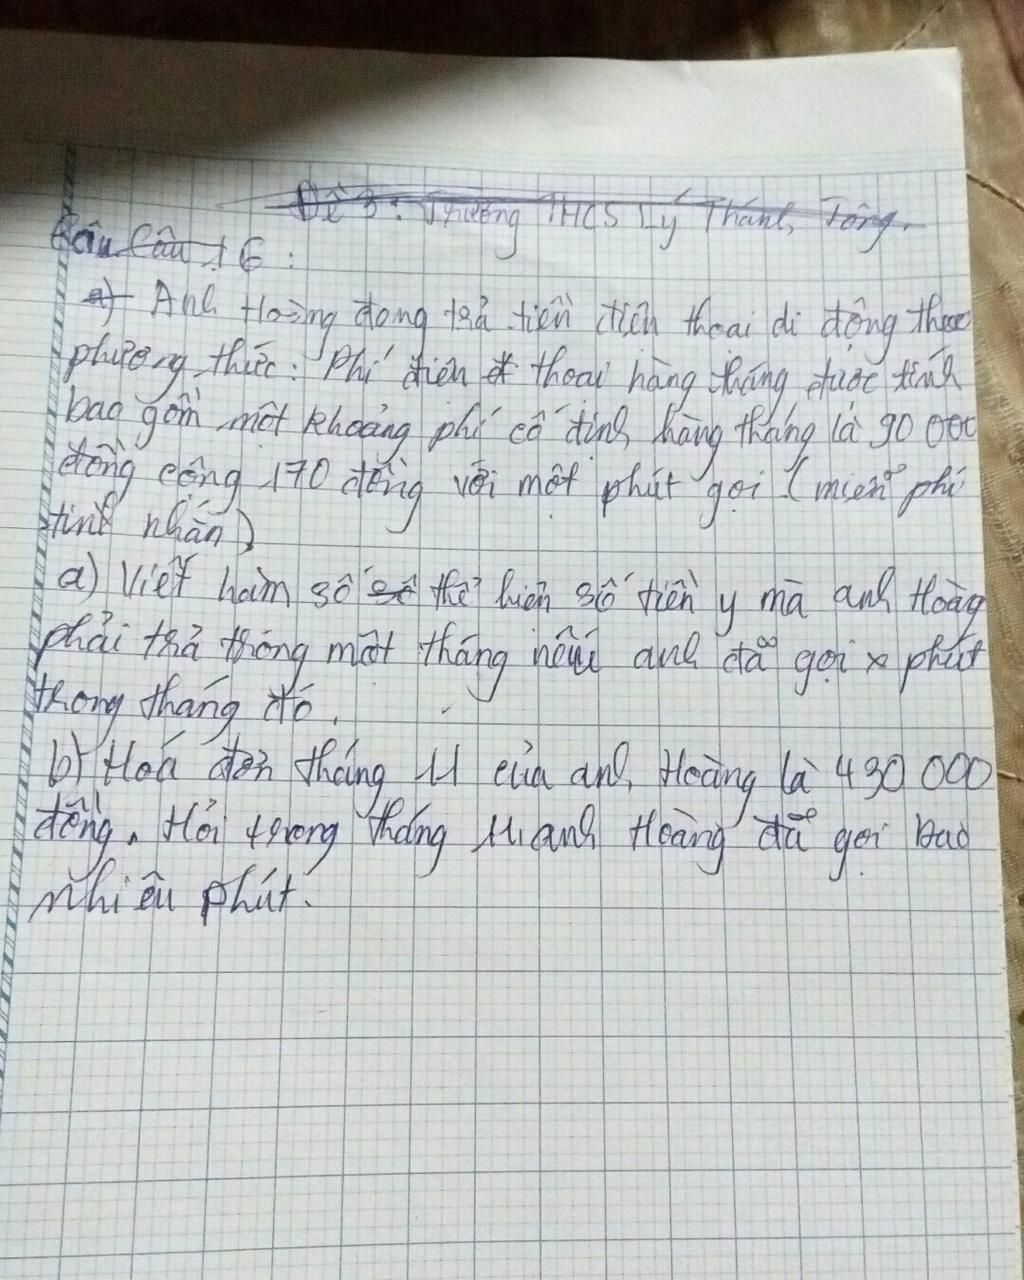 Đề 3: Trường THCS Lý Thánh Tông.
Câu Câu 16:
a) Anh Hoàng đong trả tiền điện thoai di động theo
phương thức: Phí điện thoai hàng tháng được tính
bao gồm một khoảng phí cố định hàng tháng là 90 000
đồng cộng 170 đồng với một phút gọi (miễn phí
tinh nhắn)
a) Viết hàm số số thể hiện số tiền y mà anh Hoàng
phải trả trong một tháng nếu anh đã gọi x phút
trong tháng đó.
b) Hoá đơn tháng 11 của anh Hoàng là 430 000
đồng. Hỏi trong tháng 11 anh Hoàng đã gọi bao
nhiêu phút.